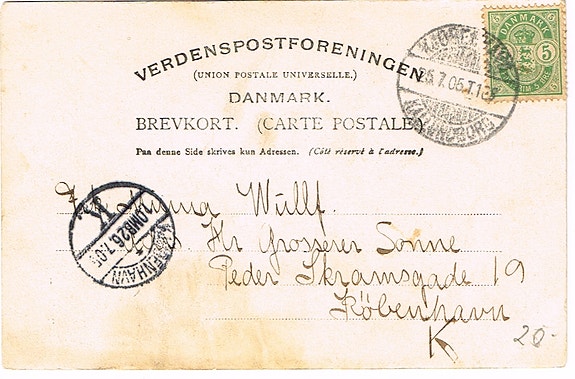 VERDENSPOSTFORENINGEN
(UNION POSTALE UNIVERSELLE.)
DANMARK.
BREVKORT. (CARTE POSTALE.)
Paa denne Side skrives kun Adressen. (Côté réservé à l'adresse.)
DANMARK
5
26.7.05.T.
Anna Wulff.
Hr Grosserer Sonne
Peder Skramsgade 19
København
K
20-
K
OMB 26.7.05
KJØBENHAVN